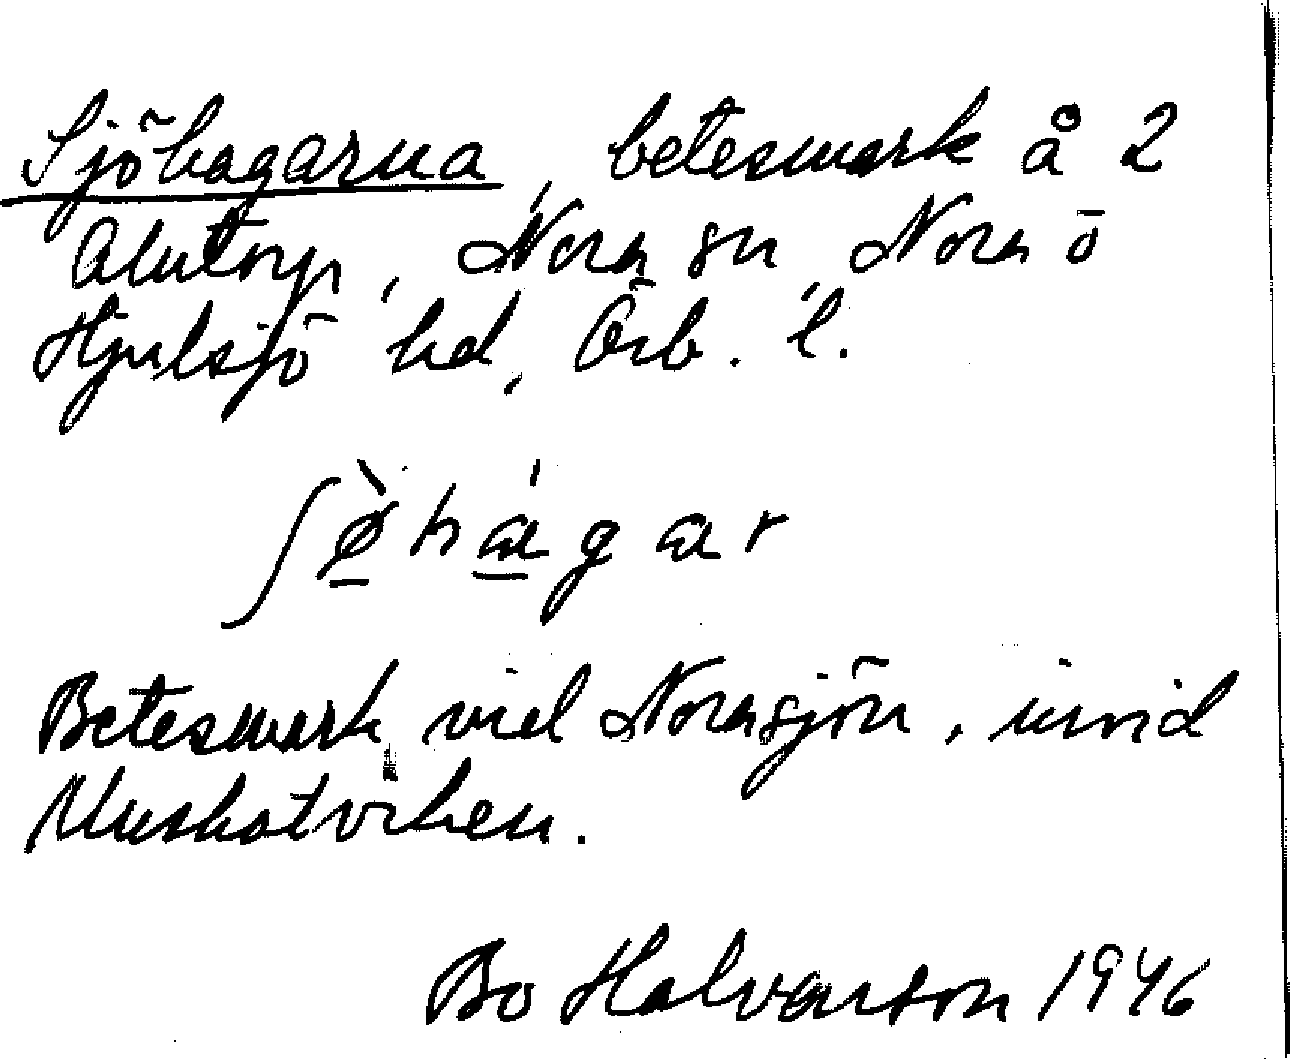 Sjöhagarna, betesmark å 2
Alntorp, Nora sn, Nora ō
Hjulsjö hd, Örb. l.
ʃø̀hágar
Betesmark vid Norasjön, invid
Muskotviken.
Bo Halvarson 1946